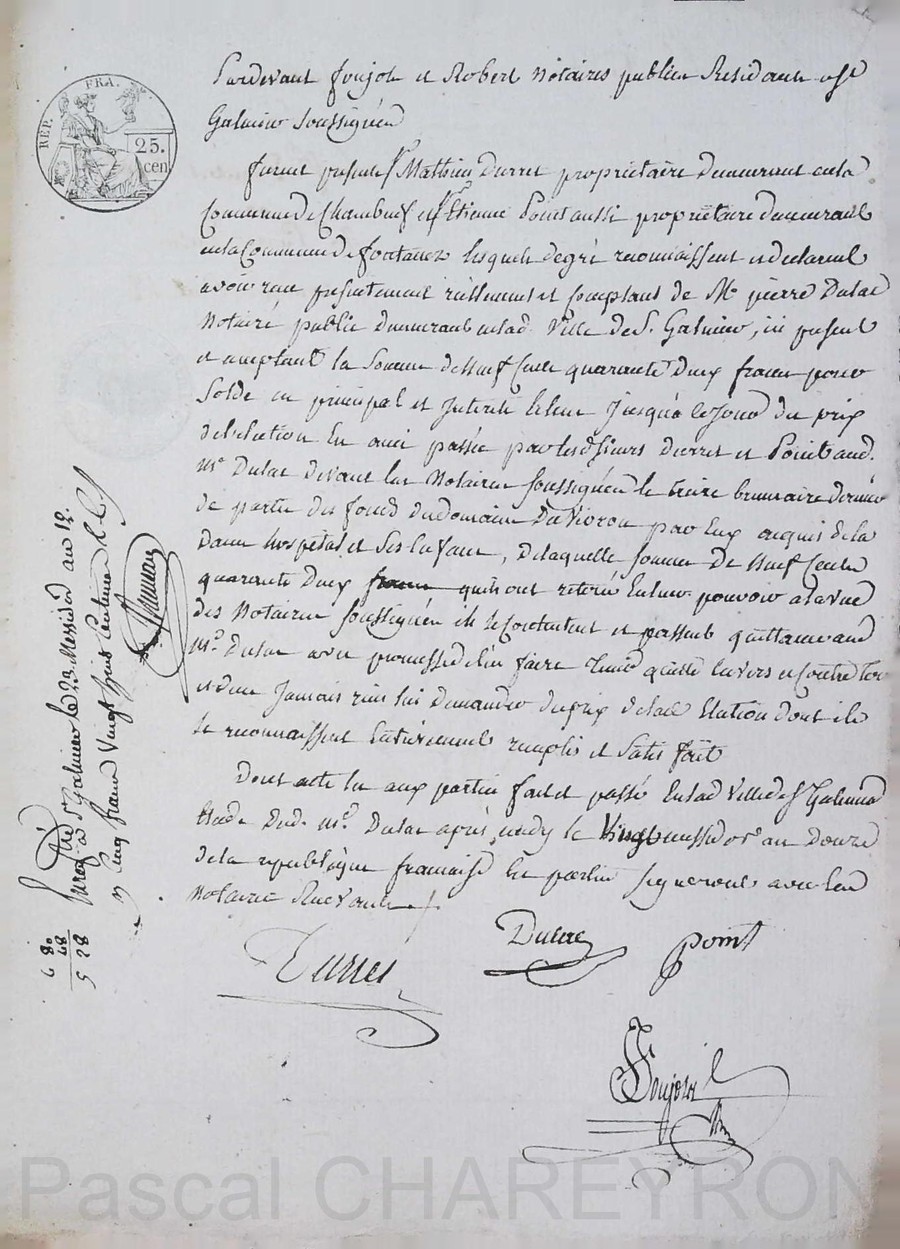 REP. FRA.
25.
cen
Pardevant foujols et Robert Notaires publics Residants à St
Galmier Soussignés
furent présents Sr Mathieu Durret propriétaire demeurant en la
Commune de Chambeuf et Sr Etienne Point aussi propriétaire demeurant
en la Commune de fontanez lesquels de gré reconnaissent et declarent
avoir reçu présentement réellement et comptant de Me pierre Dulac
Notaire public demeurant en lad. Ville de St Galmier, ici présent
et acceptant la Somme de Neuf Cents quarante Deux francs pour
Solde en principal et Interets Echus Jusqu'à ce Jour du prix
de l'élection En ami passée par lesd. Sieurs Durret et Point aud.
Me Dulac devant les Notaires Soussignés le treize brumaire dernier
de partie des fonds du domaine Du Vioron par Eux acquis de la
Dame hospital et Ses Enfans, De laquelle Somme de Neuf Cents
quarante Deux francs qu'ils ont retirée En leur pouvoir à la vue
des Notaires Soussignés ils Se Contentent et passent quittance aud.
Me. Dulac avec promesse de l'en faire tenir quitte Envers et Contre tous
et de ne Jamais rien lui demander du prix de lad. Election dont ils
Se reconnaissent Entièrement remplis et Satisfait
Dont acte lu aux parties fait et passé En lad Ville de St Galmier
Etude Dud. Me. Dulac après midy le Vingt messidor an Douze
de la république française les parties Signeront avec les
Notaires Recevants
Durret
Dulac
point
foujols
Enregistré à St Galmier le 23 Messidor an 12.
Cinq francs Vingt huit Centimes
4 80
48
5 28
Pascal CHAREYRON